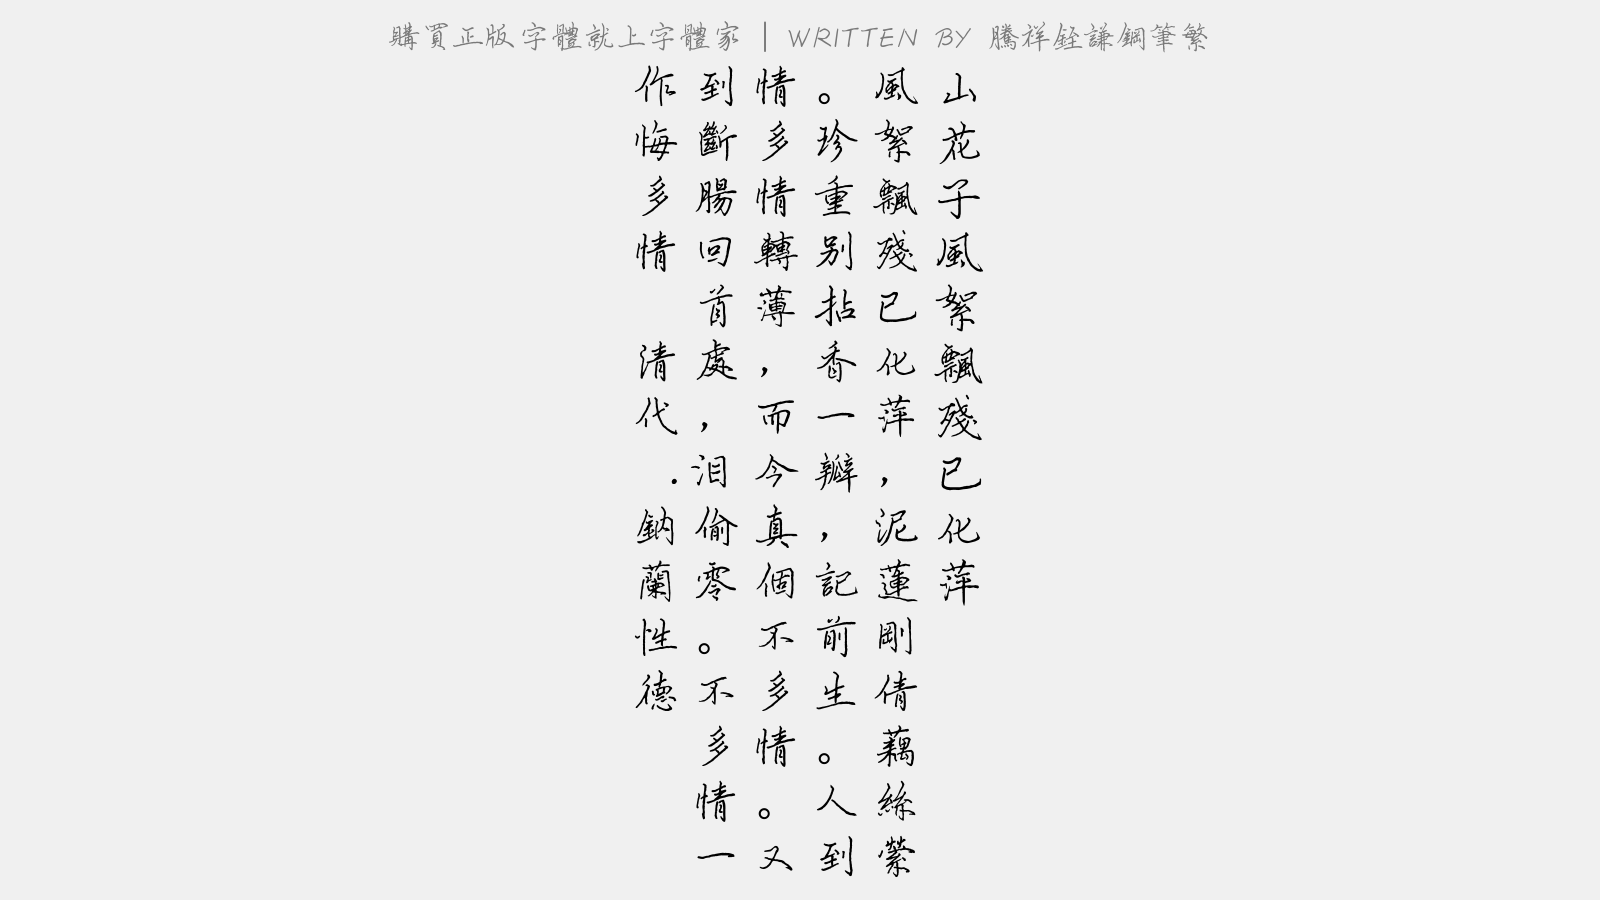 購買正版字體就上字體家 | WRITTEN BY 騰祥鈺謙鋼筆繁
山花子風絮飄殘已化萍
風絮飄殘已化萍，泥蓮剛倩藕絲縈
。珍重别拈香一瓣，記前生。人到
情多情轉薄，而今真個不多情。又
到斷腸回首處，泪偷零。不多情一
作悔多情 清代．鈉蘭性德